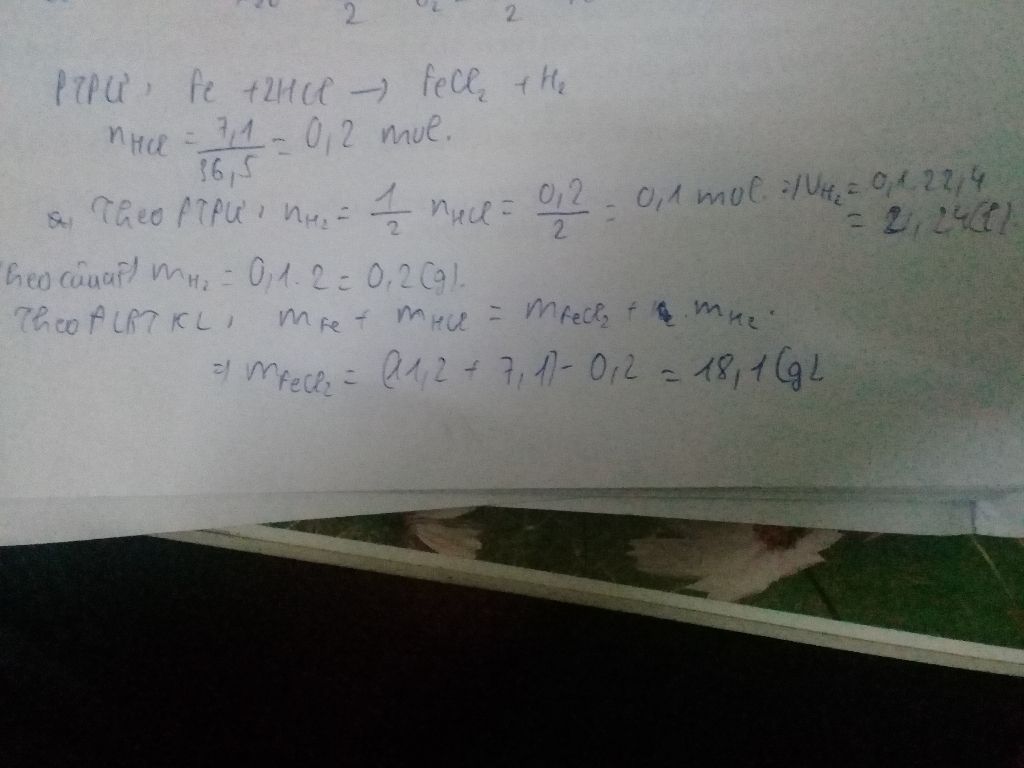 2
2
2
PTPƯ: Fe + 2HCl → FeCl₂ + H₂
nHCl = 7,1/36,5 = 0,2 mol.
a, Theo PTPƯ: nH₂ = 1/2 nHCl = 0,2/2 = 0,1 mol. ⇒ VH₂ = 0,1.22,4
= 2,24(l).
mH₂ = 0,1.2 = 0,2(g).
Theo ĐLBTKL: mFe + mHCl = mFeCl₂ + mH₂.
⇒ mFeCl₂ = (11,2 + 7,1) - 0,2 = 18,1(g)